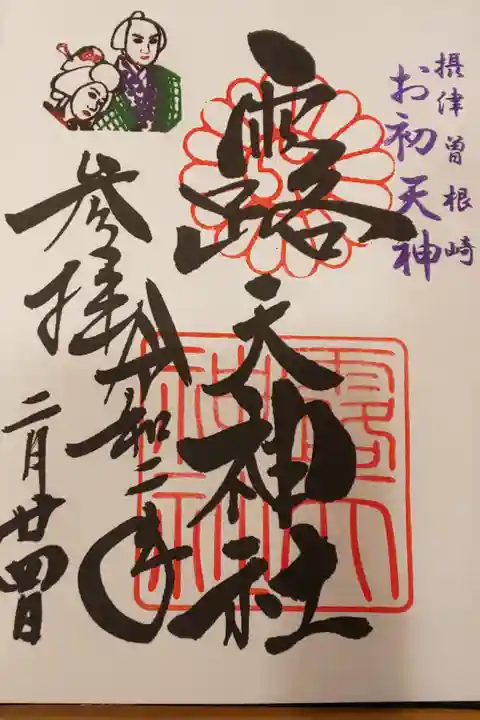 摂津曽根崎
お初天神
露天神社
令和二年
二月廿四日
参拝